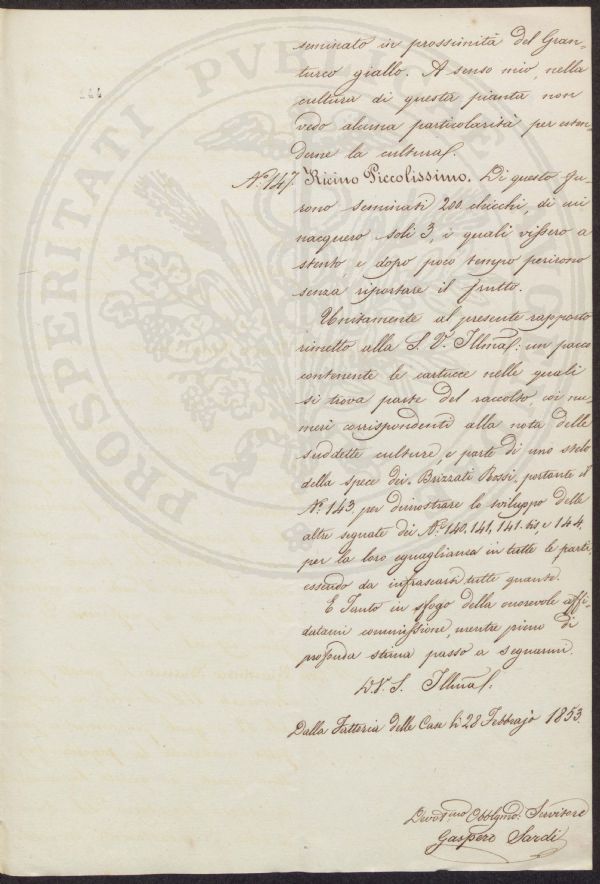 seminato in prossimità del Gran=
turco giallo. A senso mio, nella
cultura di questa pianta non
vedo alcuna particolarità per esten=
derne la cultura.
N.° 147. Ricino Piccolissimo. Di questo fu=
rono seminati 200 chicchi, di cui
nacquero soli 3, i quali vissero a
stento, e dopo poco tempo perirono
senza riportare il frutto.
Unitamente al presente rapporto
rimetto alla S. V. Illma: un pacco
contenente le cartucce nelle quali
si trova parte del raccolto, coi nu=
meri corrispondenti alla nota delle
suddette culture, e parte di uno stelo
della spece dei Brizzati Rossi, portante il
N.° 143, per dimostrare lo sviluppo delle
altre segnate dei N.i 140, 141, 141. bis, e 144,
per la loro eguaglianza in tutte le parti,
essendo da infrascarsi tutte quante.
E Tanto in sfogo della onorevole affi=
datami commissione, mentre pieno di
profonda stima passo a segnarmi.
D. V. S. Illma:
Dalla Fatteria delle Case li 28 Febbrajo 1853.
Devot.mo Obblgmo: Servitore
Gaspero Sardi
PROSPERITATI PUBLICAE